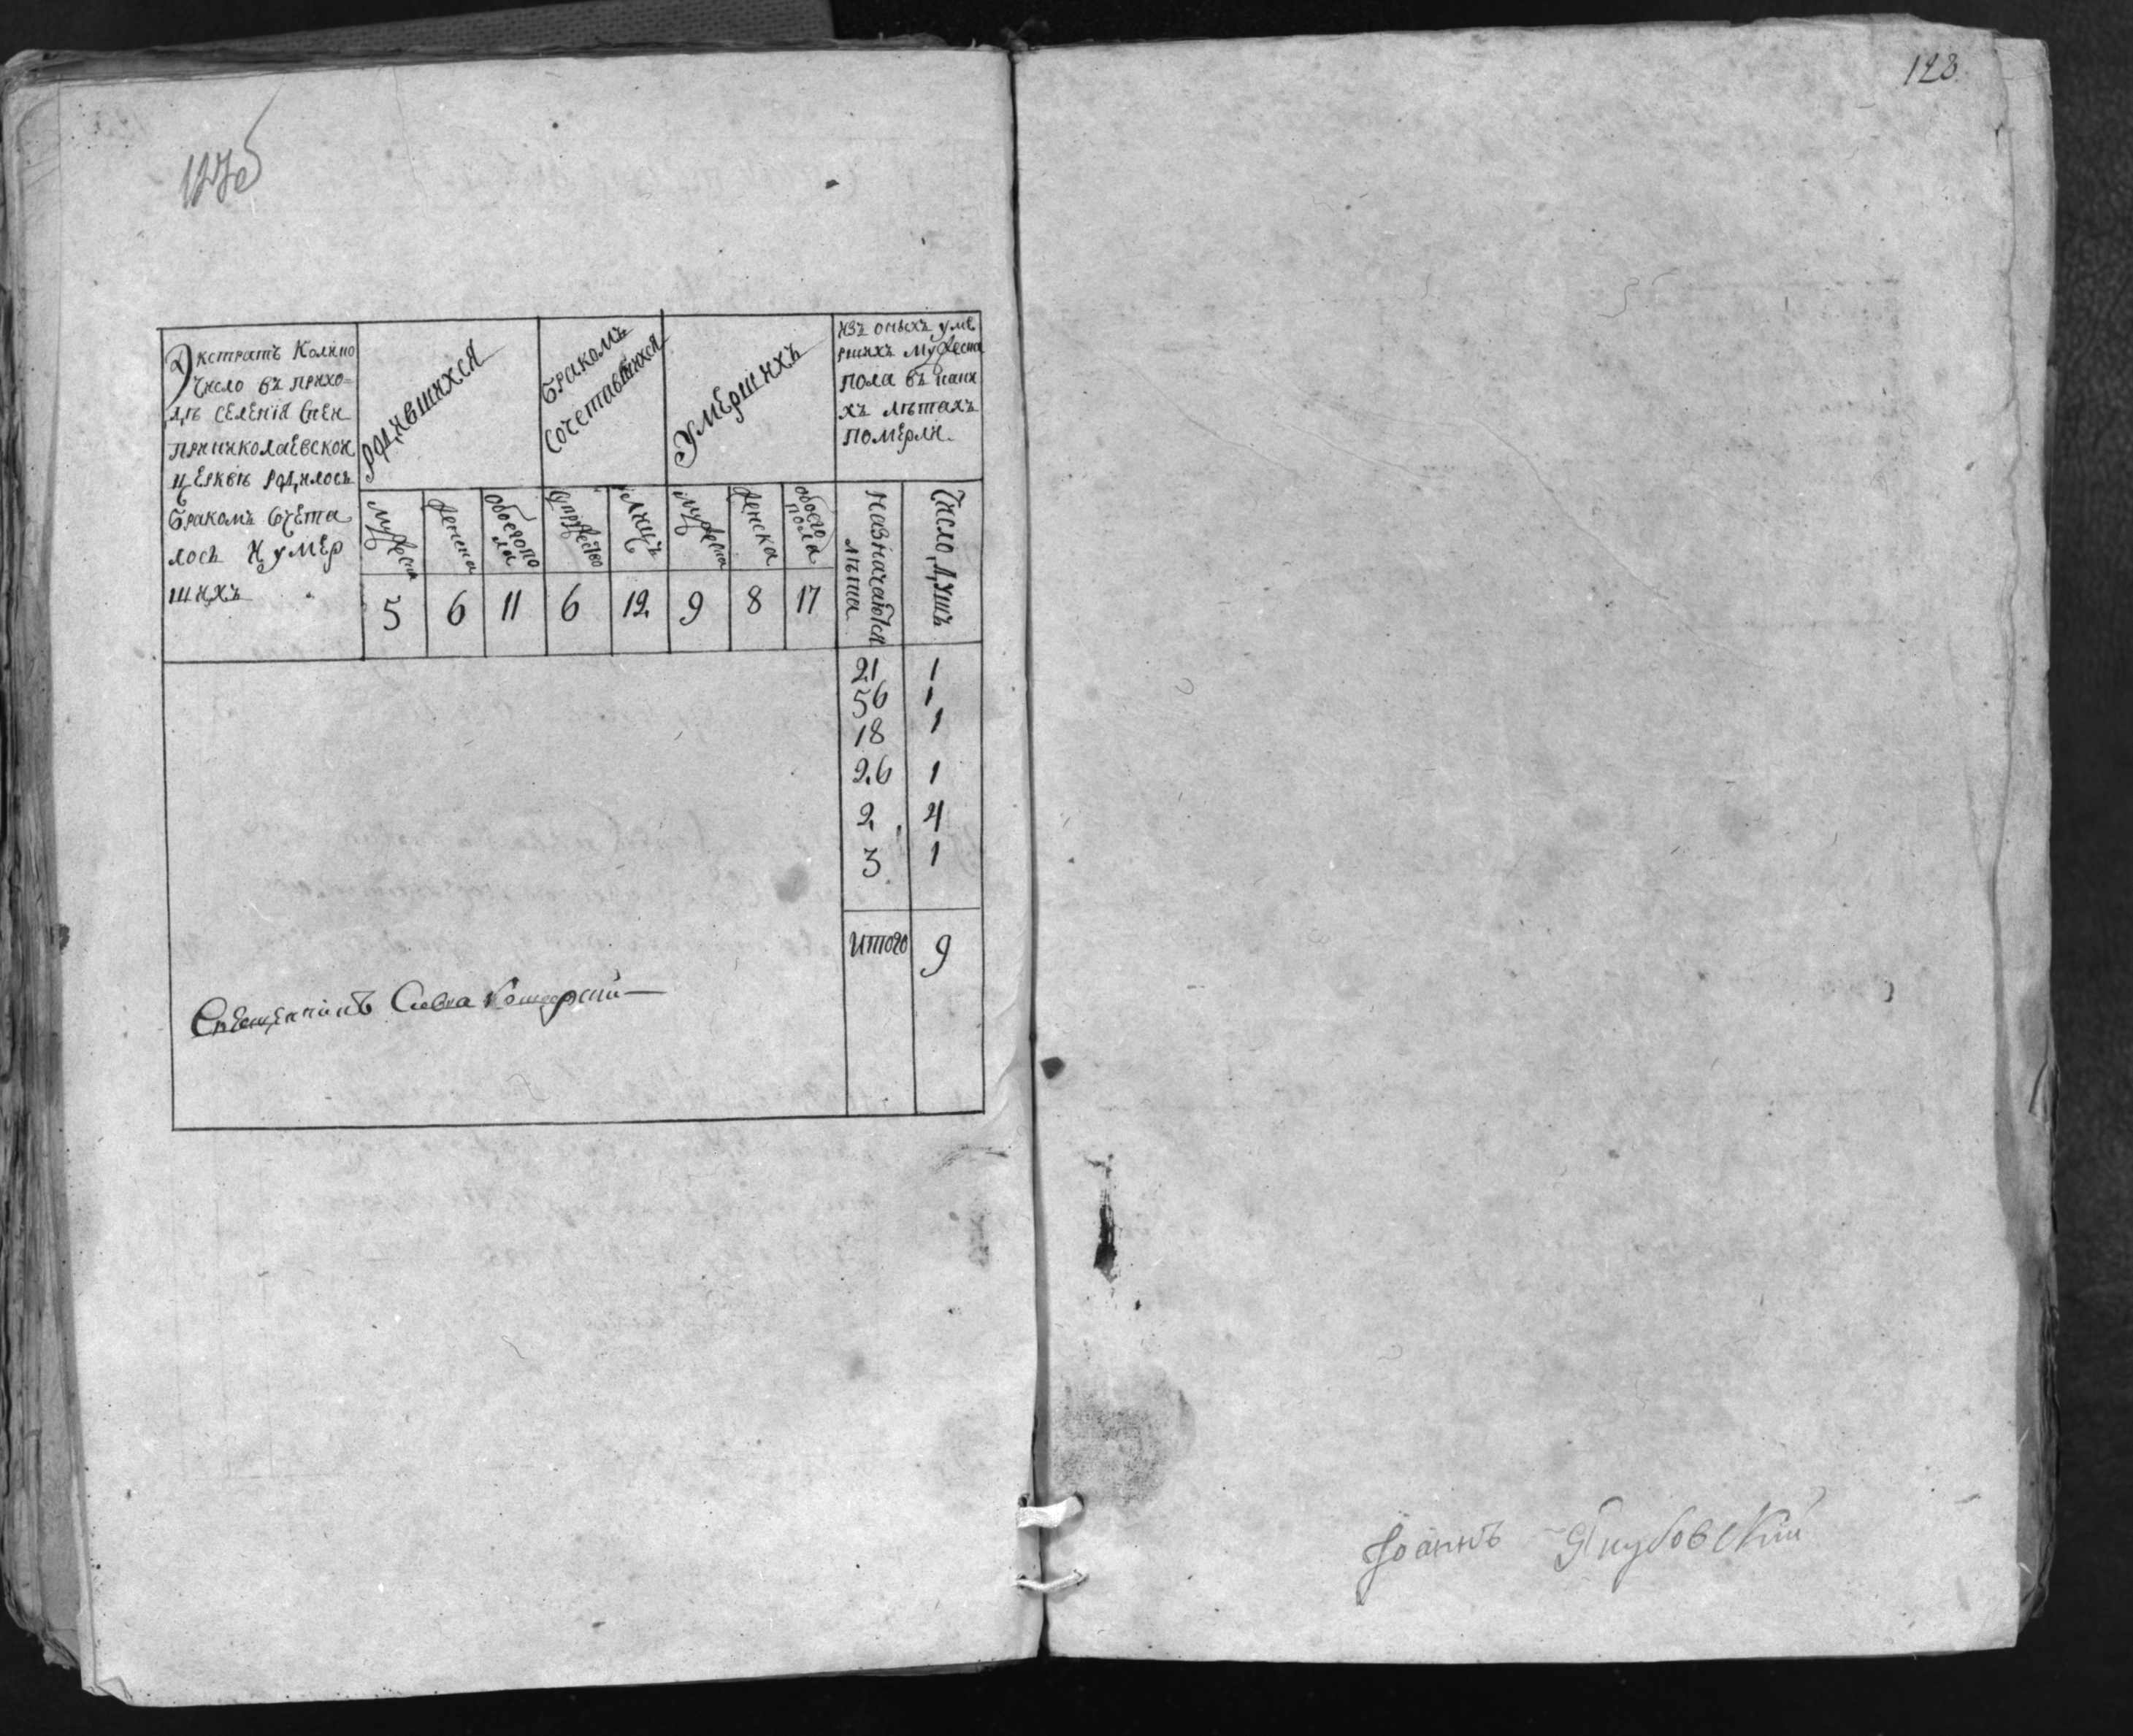 127об
Экстратъ Коликно
число въ прихо=
дѣ селенія
приниколаевской
церквѣ родилось
бракомъ сочета
лось и умер
шихъ
родившихся
бракомъ
сочетавшихся
Умершихъ
изъ оныхъ уме
ршихъ мужеска
пола въ каки
хъ лѣтахъ
померли.
мужеска
женска
обоегопо
ла
супружество
лицъ
мужеска
женска
обоего
пола
назначаются
лѣта
Число душъ
5 6 11 6 12 9 8 17
21 1
56 1
18 1
26 1
2 4
3 1
Итого 9
Священникъ Савва
128
Іоаннъ